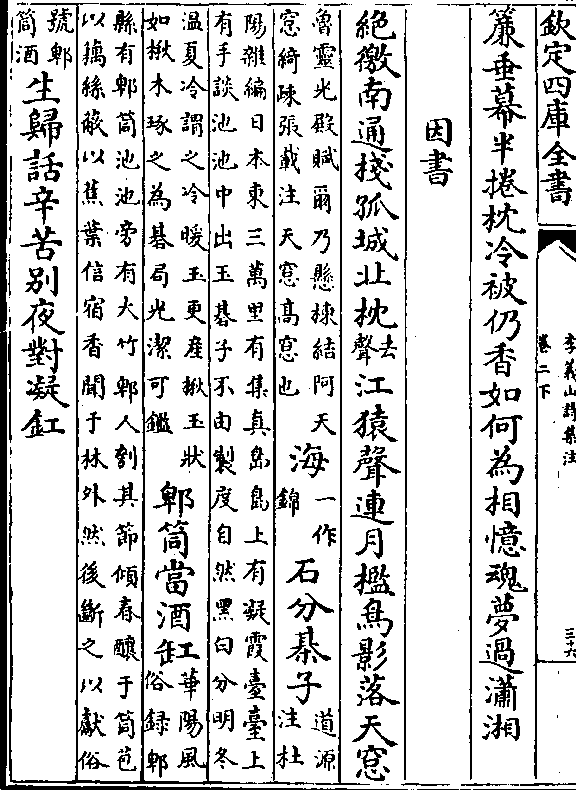 欽定四庫全書
李義山詩集注
卷二下
三十六
簾垂幕半捲枕冷被仍香如何為相憶魂夢過瀟湘
因書
絶徼南通棧孤城北枕去聲江猿聲連月檻鳥影落天窓
魯靈光殿賦爾乃懸棟結阿天
窓綺疎張載注天窓髙窓也
海一作錦石分棊子道源注杜
陽雜編日本東三萬里有集真島島上有凝霞臺臺上
有手談池池中出玉碁子不由製度自然黑白分明冬
温夏冷謂之冷暖玉更産楸玉狀
如楸木琢之為碁局光潔可鑑
郫筒當酒缸華陽風俗録郫
縣有郫筒池池旁有大竹郫人刳其節傾春釀于筒苞
以藕絲蔽以蕉葉信宿香聞于林外然後斷之以獻俗
號郫筒酒生歸話辛苦别夜對凝缸